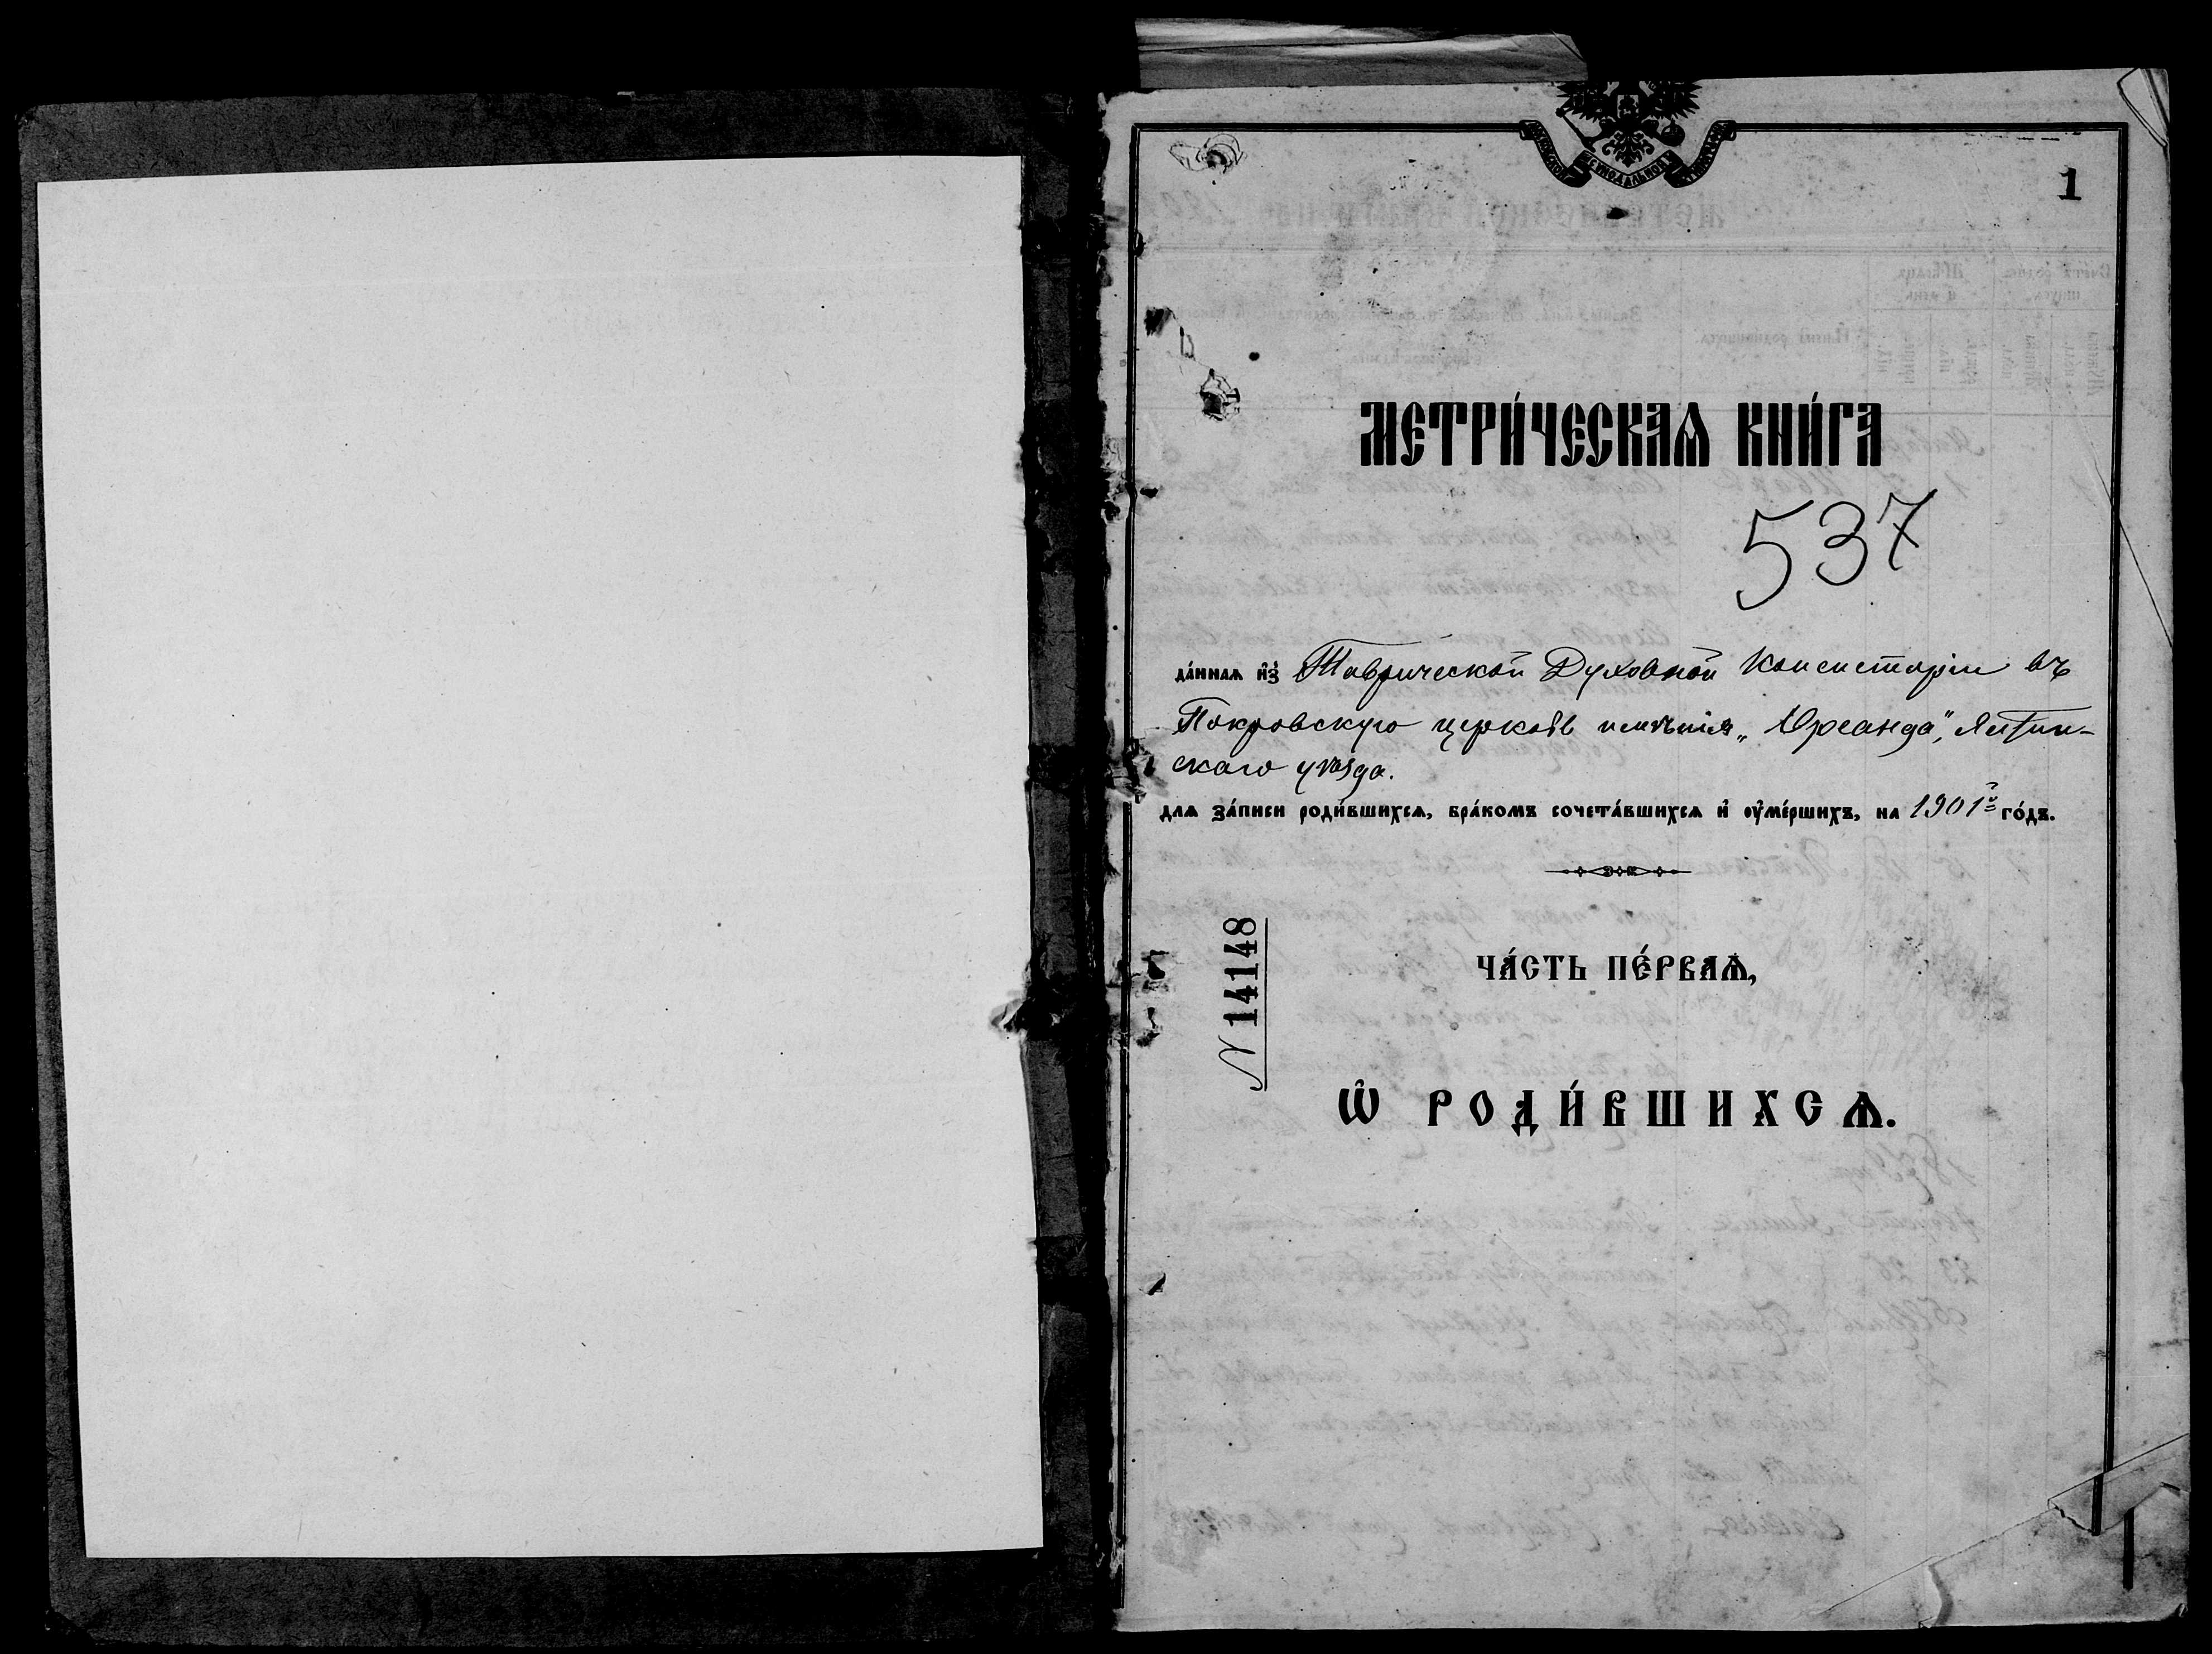 СѴНОДАЛЬНОЙ
1
МЕТРИ́ЧЕСКАѦ КНИ́ГА
537
да́ннаѧ и҆з̾ Таврической Духовной Консисторіи въ
Покровскую церковь имѣнія „Ореанда", Ялтин-
скаго уѣзда.
для за́писи роди́вшихсѧ, бра́комъ сочета́вшихсѧ и҆ ᲂу҆ме́ршихъ, на 1901й го́дъ.
N 14148
ЧА́СТЬ ПЕ́РВАѦ,
Ѽ РОДИ́ВШИХСѦ.